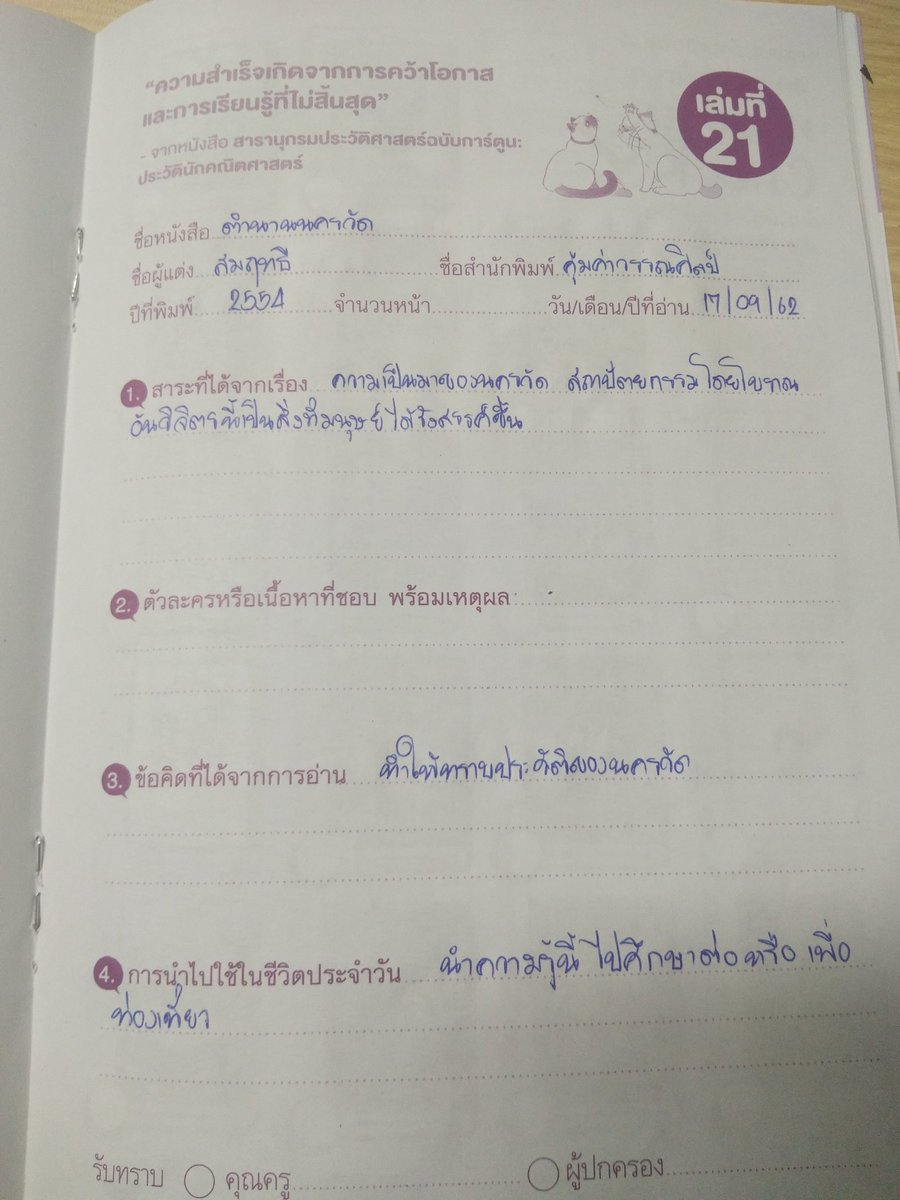 “ความสำเร็จเกิดจากการคว้าโอกาส
และการเรียนรู้ที่ไม่สิ้นสุด”
- จากหนังสือ สารานุกรมประวัติศาสตร์ฉบับการ์ตูน:
ประวัตินักคณิตศาสตร์
เล่มที่
21
ชื่อหนังสือ ตำนานนครวัด
ชื่อผู้แต่ง สมฤทธิ์ ชื่อสำนักพิมพ์ คุ้มค่าวรรณศิลป์
ปีที่พิมพ์ 2554 จำนวนหน้า วัน/เดือน/ปีที่อ่าน 17/09/62
1. สาระที่ได้จากเรื่อง ความเป็นมาของนครวัด สถาปัตยกรรมโดยโบราณ
อันวิจิตรนี้เป็นสิ่งที่มนุษย์ได้รังสรรค์ขึ้น
2. ตัวละครหรือเนื้อหาที่ชอบ พร้อมเหตุผล
3. ข้อคิดที่ได้จากการอ่าน ทำให้ทราบประวัติของนครวัด
4. การนำไปใช้ในชีวิตประจำวัน นำความรู้นี้ไปศึกษาต่อหรือ เพื่อ
ท่องเที่ยว
รับทราบ คุณครู ผู้ปกครอง